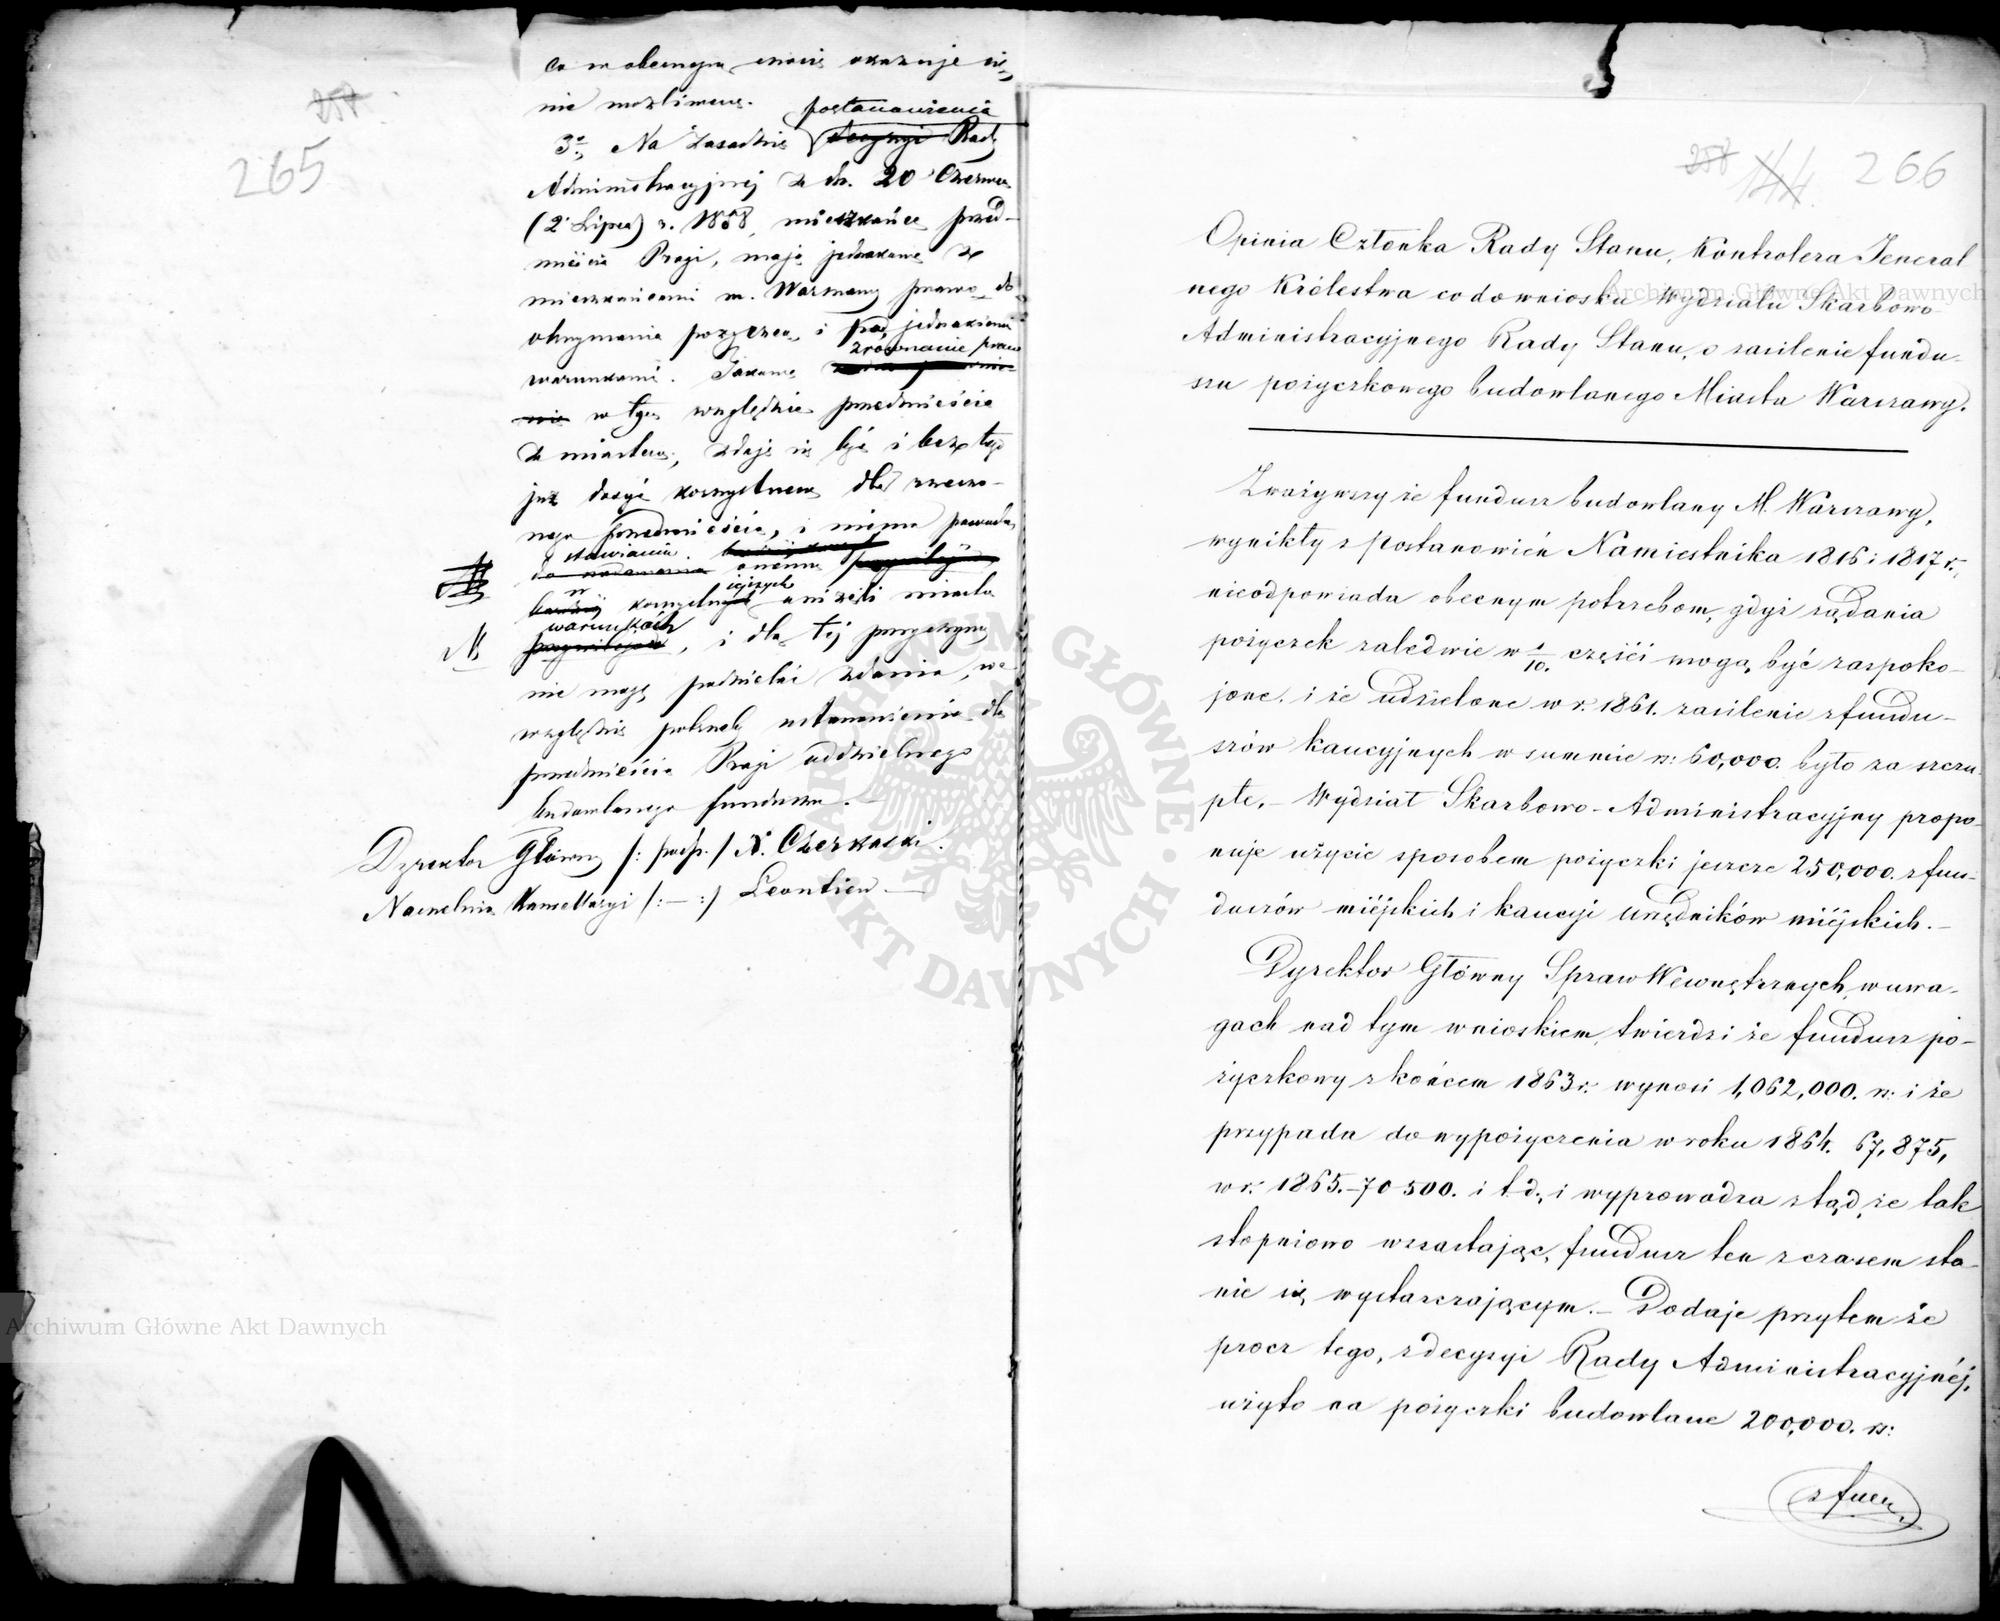 257
265
co w obecnym czasie okazuje się
nie możliwem.
postanowienia
3o, Na zasadzie decyzyi Rady
Administracyjnej z dn. 20 Czerwca
(2 Lipca) r. 1858, mieszkańce przed-
mieścia Pragi, mają jednakowe z
mieszkańcami m. Warszawy prawo do
otrzymania pożyczek i pod jednakiemi
zrównanie praw
warunkami. Takowe
nie w tym względzie przedmieścia
z miastem, zdaje się być i bez tego
już dosyć korzystnem dla rzeczo-
nego przedmieścia, i niema powodu
stawiania
do nadawania onemu
w
korzystniejszych aniżeli miasta
warunkach
przywilejów, i dla tej przyczyny
nie mogę podzielać zdania, we
względzie potrzeby ustanowienia dla
przedmieścia Pragi oddzielnego
budowlanego funduszu.
Dyrektor Główny /: podp. / X. Czerkaski.
Naczelnik Kancellaryi /: — :/ Leontiew —
258 144 266
Opinia Członka Rady Stanu, Kontrolera Jeneral
nego Królestwa co do wniosku Wydziału Skarbowo
Administracyjnego Rady Stanu, o zasilenie fundu-
szu pożyczkowego budowlanego Miasta Warszawy.
Zważywszy że fundusz budowlany M. Warszawy,
wynikły z postanowień Namiestnika 1816 i 1817 r.,
nieodpowiada obecnym potrzebom, gdyż żądania
pożyczek zaledwie w 1/10. części mogą być zaspoko-
jone. i że udzielone w r. 1861. zasilenie z fundu-
szów kaucyjnych w summie rs: 60,000. było za szczu-
płe. – Wydział Skarbowo-Administracyjny propo-
nuje użycie sposobem pożyczki jeszcze 250,000. z fun-
duszów miejskich i kaucyi urzędników miejskich. –
Dyrektor Główny Spraw Wewnętrznych, w uwa-
gach nad tym wnioskiem, twierdzi że fundusz po-
życzkowy z końcem 1863 r. wynosi 1,062,000. rs: i że
przypada do wypożyczenia w roku 1864. 67,875,
w r: 1865. – 70 500. i t. d., i wyprowadza ztąd, że tak
stopniowo wzrastając, fundusz ten z czasem sta-
nie się wystarczającym. – Dodaje przytem że
procz tego, z decyzyi Rady Administracyjnéj,
użyto na pożyczki budowlane 200,000. rs:
z fun
Archiwum Główne Akt Dawnych
Archiwum Główne Akt Dawnych
ARCHIWUM GŁÓWNE • AKT DAWNYCH •